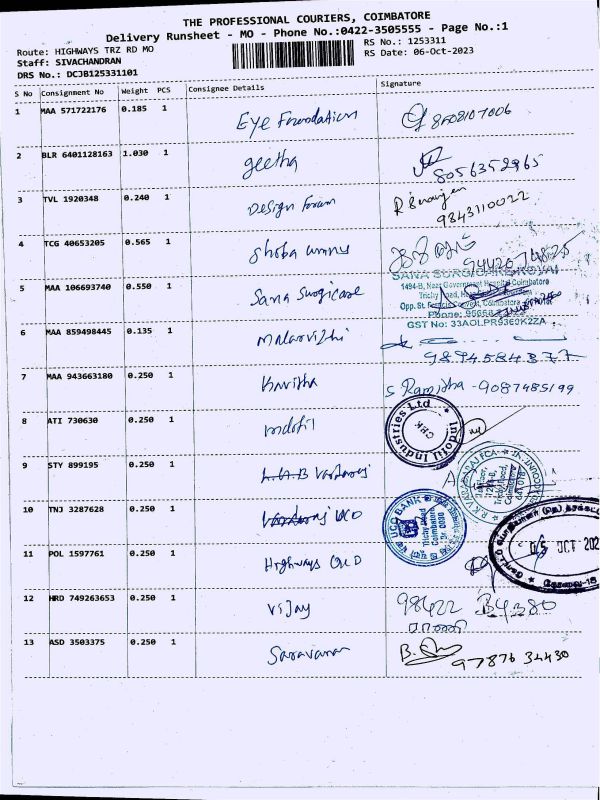 THE PROFESSIONAL COURIERS, COIMBATORE
Delivery Runsheet - MO - Phone No.:0422-3505555 - Page No.:1
Route: HIGHWAYS TRZ RD MO
RS No.: 1253311
Staff: SIVACHANDRAN
RS Date: 06-Oct-2023
DRS No.: DCJB125331101
S No Consignment No Weight PCS Consignee Details Signature
1 MAA 571722176 0.185 1 Eye Foundation 8608107006
2 BLR 6401128163 1.030 1 geetha 8056352965
3 TVL 1920348 0.240 1 Design Forum 9843110022
4 TCG 40653205 0.565 1 Shoba
SANA SURGICARE KOVAI
1494-B, Near Government Hospital Coimbatore
Trichy Road,
5 MAA 106693740 0.550 1 Sana Surgicare
Opp. St. Francis Convent, Coimbatore
Phone:
GST No: 33AOLPR9360K2ZA
6 MAA 859498445 0.135 1 Malarvizhi
9894584377
7 MAA 943663180 0.250 1 Kavitha S Ramjtha - 9087485199
8 ATI 730630 0.250 1 Indofil
Indofil Industries Ltd
9 STY 899195 0.250 1
10 TNJ 3287628 0.250 1 UCO
UCO BANK
Trichy Road
Coimbatore
11 POL 1597761 0.250 1 Highways
05 OCT 202
12 HRD 749263653 0.250 1 Vijay 98422 34380
13 ASD 3503375 0.250 1 Saravanan 97876 34430